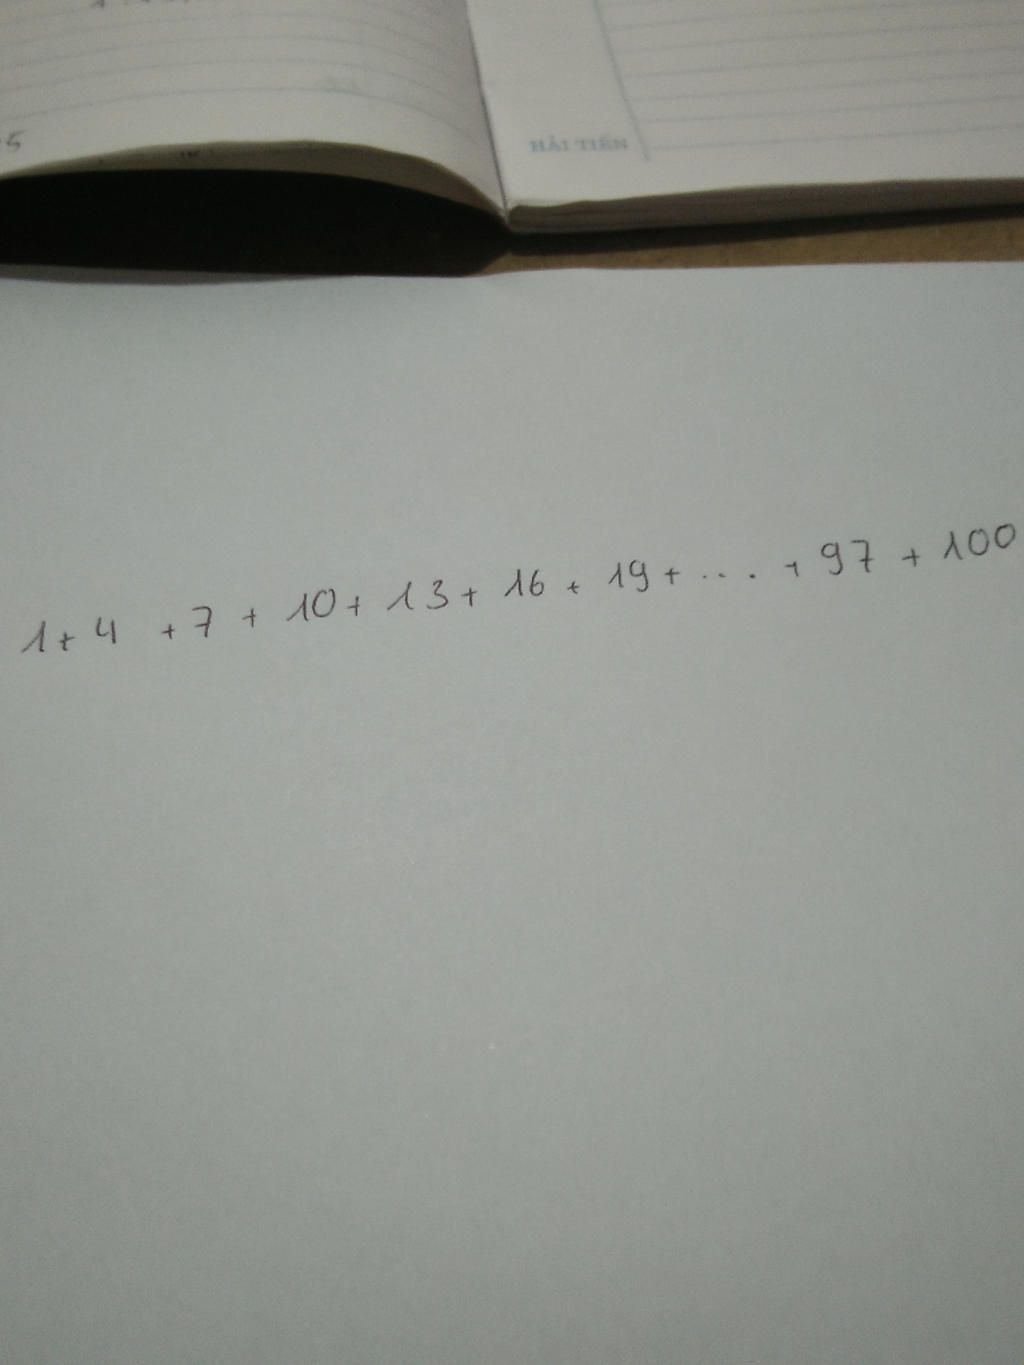 5
HẢI TIẾN
1 + 4 + 7 + 10 + 13 + 16 + 19 + .... + 97 + 100